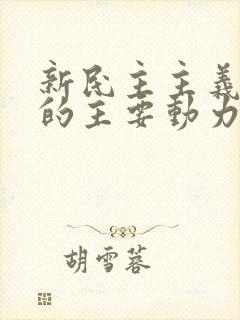 新民主主義
的主要動力
胡雪蓉